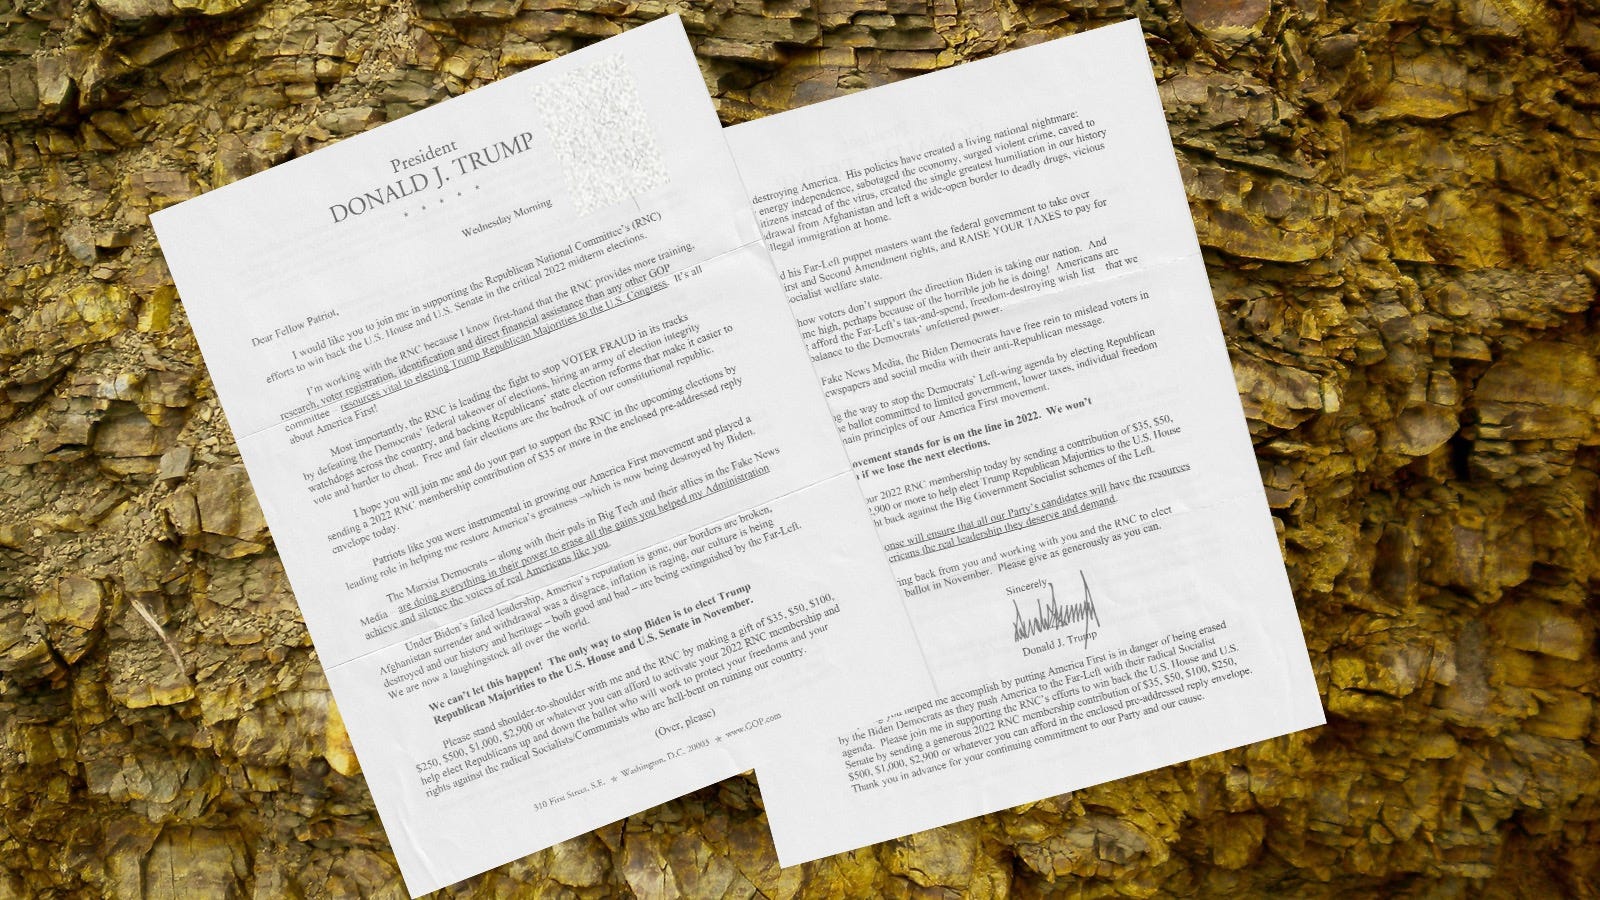 President
DONALD J. TRUMP
Wednesday Morning
Dear Fellow Patriot,
I would like you to join me in supporting the Republican National Committee's (RNC)
efforts to win back the U.S. House and U.S. Senate in the critical 2022 midterm elections.
I'm working with the RNC because I know first-hand that the RNC provides more training,
research, voter registration, identification and direct financial assistance than any other GOP
committee – resources vital to electing Trump Republican Majorities to the U.S. Congress. It's all
about America First!
Most importantly, the RNC is leading the fight to stop VOTER FRAUD in its tracks
by defeating the Democrats' federal takeover of elections, hiring an army of election integrity
watchdogs across the country, and backing Republicans' state election reforms that make it easier to
vote and harder to cheat. Free and fair elections are the bedrock of our constitutional republic.
I hope you will join me and do your part to support the RNC in the upcoming elections by
sending a 2022 RNC membership contribution of $35 or more in the enclosed pre-addressed reply
envelope today.
Patriots like you were instrumental in growing our America First movement and played a
leading role in helping me restore America's greatness –which is now being destroyed by Biden.
The Marxist Democrats – along with their pals in Big Tech and their allies in the Fake News
Media – are doing everything in their power to erase all the gains you helped my Administration
achieve and silence the voices of real Americans like you.
Under Biden's failed leadership, America's reputation is gone, our borders are broken,
Afghanistan surrender and withdrawal was a disgrace, inflation is raging, our culture is being
destroyed and our history and heritage – both good and bad – are being extinguished by the Far-Left.
We are now a laughingstock all over the world.
We can't let this happen! The only way to stop Biden is to elect Trump
Republican Majorities to the U.S. House and U.S. Senate in November.
Please stand shoulder-to-shoulder with me and the RNC by making a gift of $35, $50, $100,
$250, $500, $1,000, $2,900 or whatever you can afford to activate your 2022 RNC membership and
help elect Republicans up and down the ballot who will work to protect your freedoms and your
rights against the radical Socialists/Communists who are hell-bent on ruining our country.
(Over, please)
310 First Street, S.E. ★ Washington, D.C. 20003 ★ www.GOP.com
destroying America. His policies have created a living national nightmare:
energy independence, sabotaged the economy, surged violent crime, caved to
itizens instead of the virus, created the single greatest humiliation in our history
drawal from Afghanistan and left a wide-open border to deadly drugs, vicious
llegal immigration at home.
d his Far-Left puppet masters want the federal government to take over
irst and Second Amendment rights, and RAISE YOUR TAXES to pay for
ocialist welfare state.
how voters don't support the direction Biden is taking our nation. And
me high, perhaps because of the horrible job he is doing! Americans are
t afford the Far-Left's tax-and-spend, freedom-destroying wish list – that we
balance to the Democrats' unfettered power.
Fake News Media, the Biden Democrats have free rein to mislead voters in
ewspapers and social media with their anti-Republican message.
ng the way to stop the Democrats' Left-wing agenda by electing Republican
e ballot committed to limited government, lower taxes, individual freedom
main principles of our America First movement.
ovement stands for is on the line in 2022. We won't
if we lose the next elections.
our 2022 RNC membership today by sending a contribution of $35, $50,
2,900 or more to help elect Trump Republican Majorities to the U.S. House
ht back against the Big Government Socialist schemes of the Left.
onse will ensure that all our Party's candidates will have the resources
ericans the real leadership they deserve and demand.
ing back from you and working with you and the RNC to elect
ballot in November. Please give as generously as you can.
Sincerely,
Donald J. Trump
you helped me accomplish by putting America First is in danger of being erased
by the Biden Democrats as they push America to the Far-Left with their radical Socialist
agenda. Please join me in supporting the RNC's efforts to win back the U.S. House and U.S.
Senate by sending a generous 2022 RNC membership contribution of $35, $50, $100, $250,
$500, $1,000, $2,900 or whatever you can afford in the enclosed pre-addressed reply envelope.
Thank you in advance for your continuing commitment to our Party and our cause.